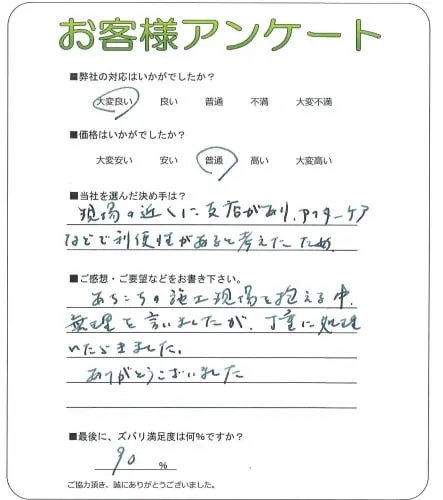 お客様アンケート
■弊社の対応はいかがでしたか?
大変良い 良い 普通 不満 大変不満
■価格はいかがでしたか?
大変安い 安い 普通 高い 大変高い
■当社を選んだ決め手は?
現場の近くに支店があり、アフターケア
などで利便性があると考えたため
■ご感想・ご要望などをお書き下さい。
あちこちの施工現場を抱える中、
無理を言いましたが、丁重に処理
いただきました。
ありがとうございました
■最後に、ズバリ満足度は何%ですか?
90 %
ご協力頂き、誠にありがとうございました。